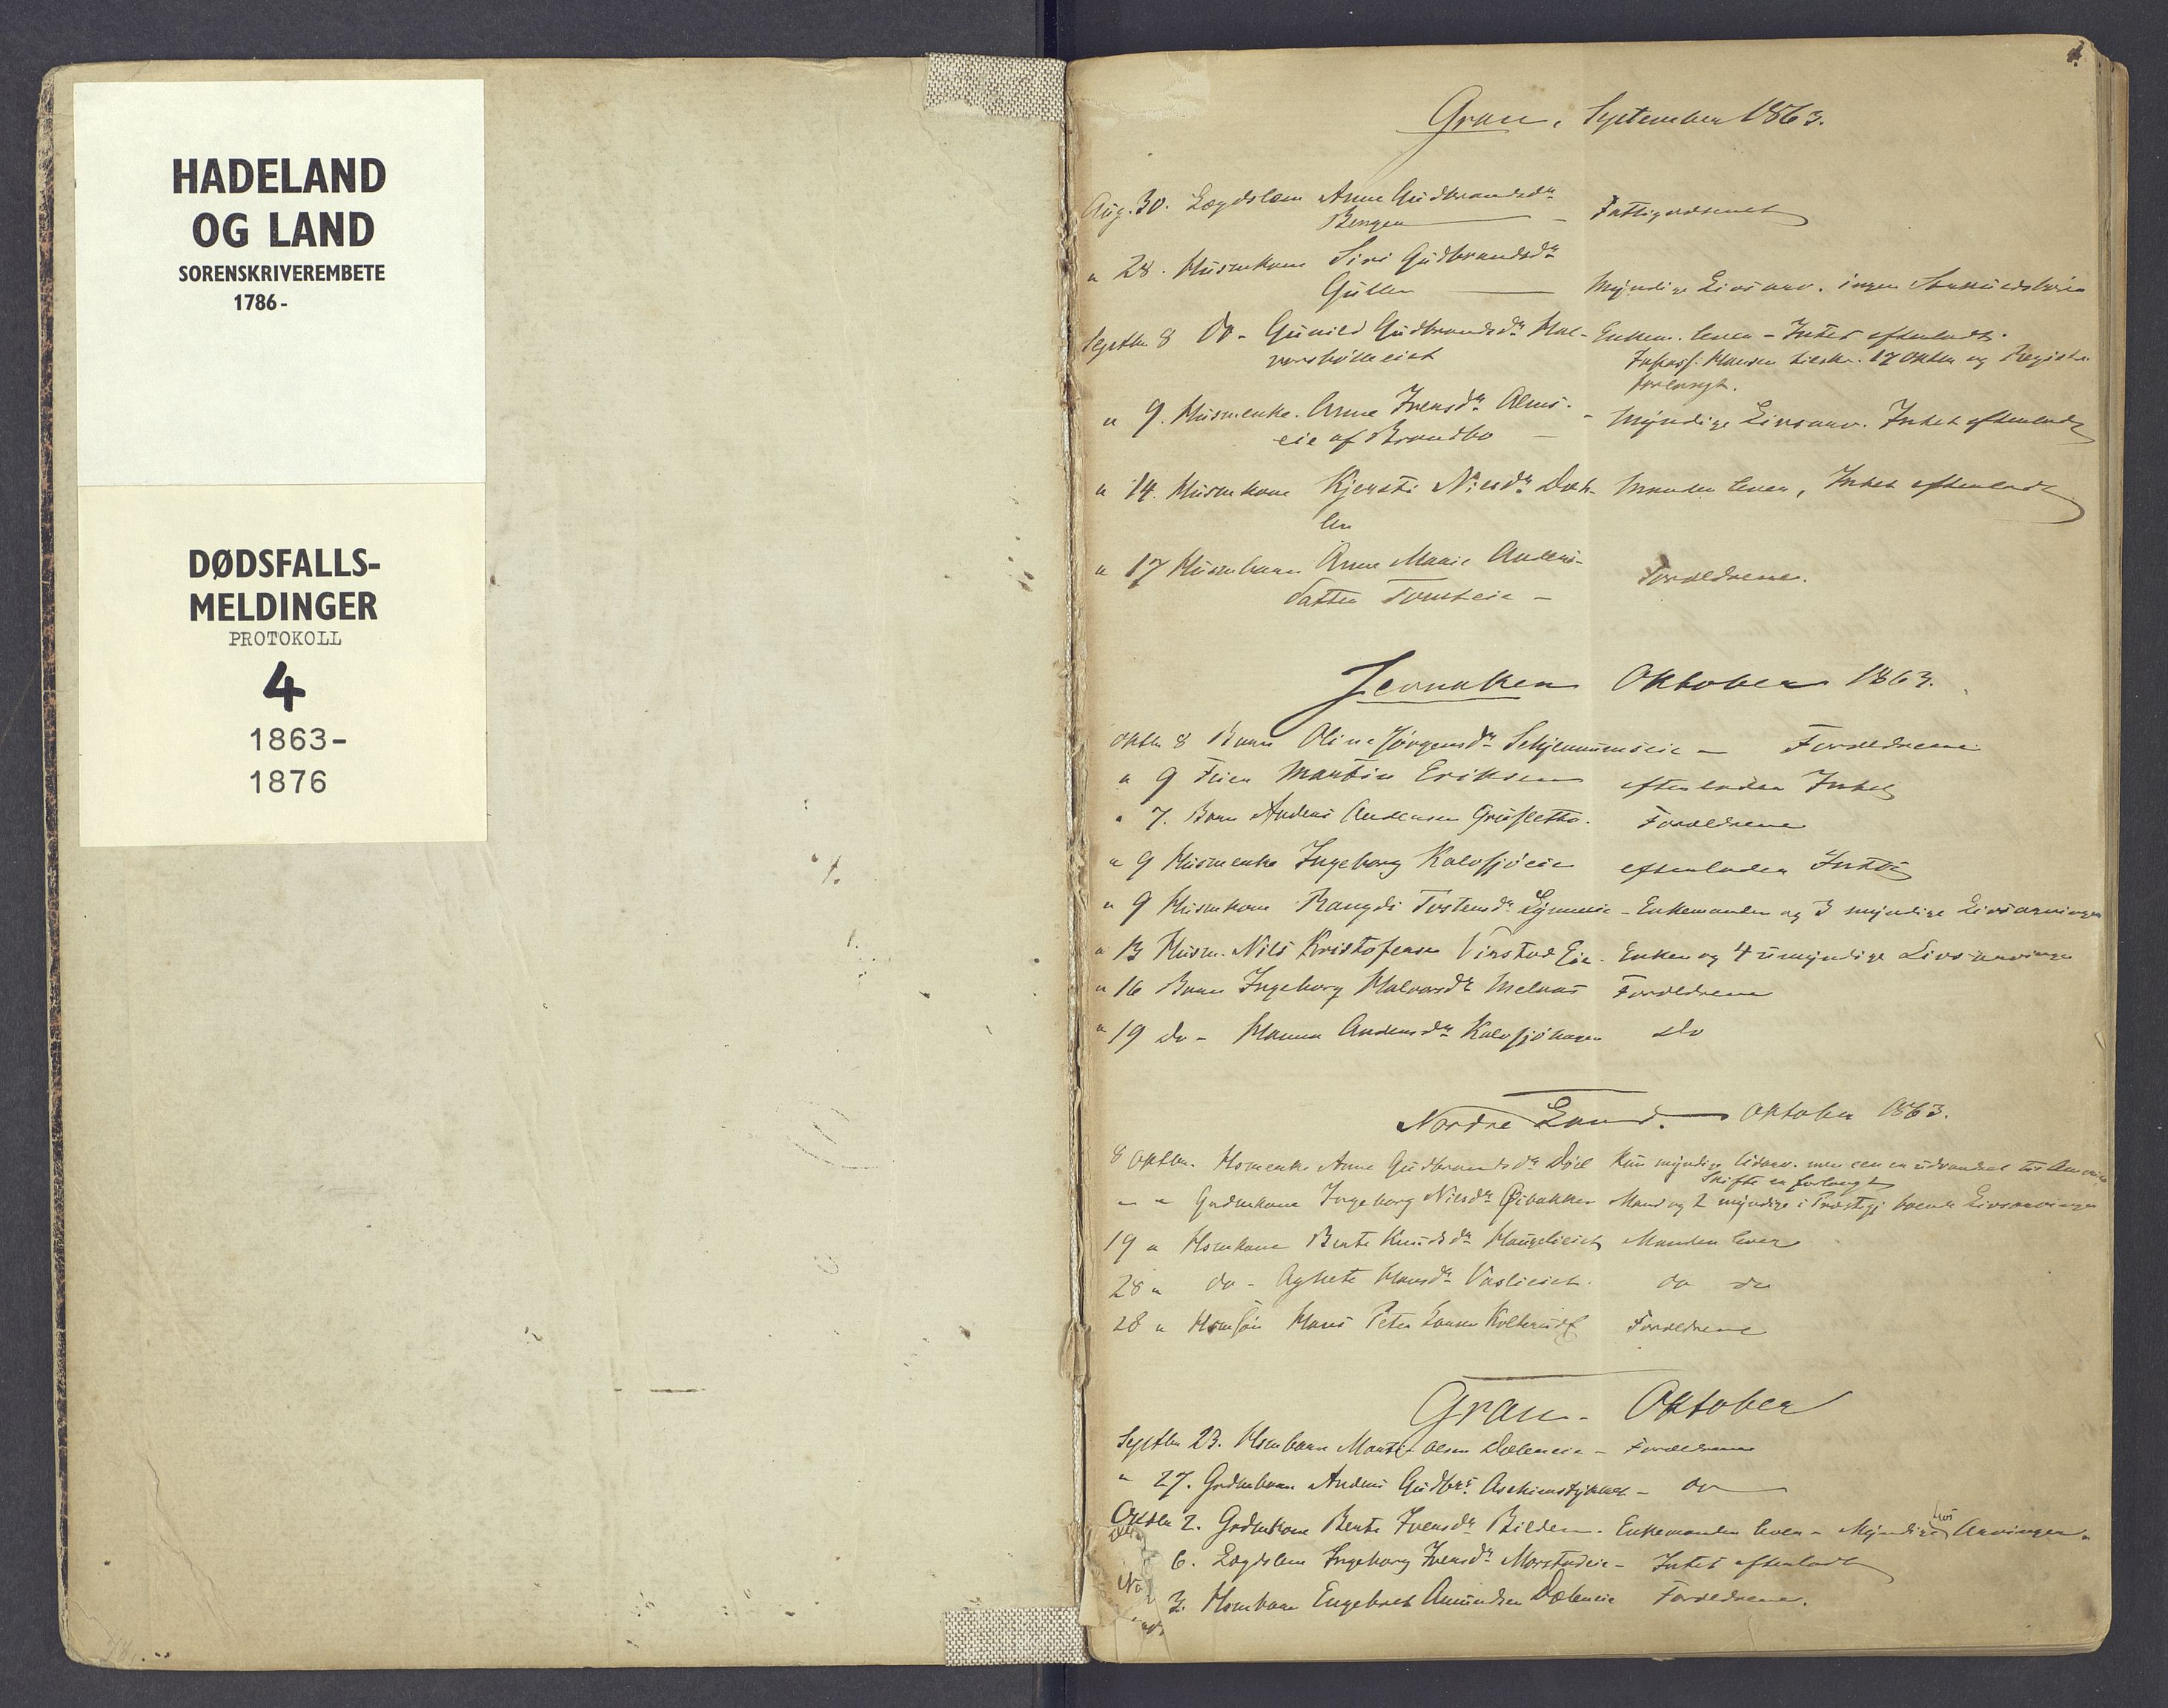 HADELAND
OG LAND
SORENSKRIVEREMBETE
1786-
DØDSFALLS-
MELDINGER
PROTOKOLL
4
1863-
1876
Gran, September 1863.
Aug. 30. Lægdslem Anne Gudbrandsdr
Bergen — Fattigvæsenet
" 28. Husmkone Siri Gudbrandsdr
Gullen — Myndige Livsarv. ingen
Septbr 8 Do - Gunild Gudbrandsdr Hal- Enkem. lever - Intet efterladt.
vorsbøleeiet 17 Oktbr og
forlangt.
" 9. Husmenke. Anne Iversdr Alms- - Myndige Livsarv. Intet efterladt
eie af Brandbo —
" 14. Husmkone Kjersti Nilsdr Dæh- Manden lever, Intet efterladt
len
" 17 Husmbarn Anne Marie Anders- Forældrene.
datter Tomteie -
Jevnaker Oktober 1863.
Oktbr 8 Barn Oline Jörgensdr Schjerummseie — Forældrene
" 9 Martin Eriksen efterlader Intet
" 7. Barn Anders Andersen Forældrene
" 9 Husmenke Ingeborg Kalvsjöeie efterlader Intet
" 9 Husmkone Rangdi Tostensdr - Enkemanden og 3 myndige Livsarvinger
" 13 Husm. Nils Kristofersen Virstad Eie. Enken og 4 umyndige Livsarvinger
" 16 Barn Ingeborg Halvorsdr Melaas Forældrene
" 19 do - Hanna Andersdr Kalvsjöhagen do
Nordre Land. — Oktober 1863.
8 Oktbr. Hsmenke Anne Gudbrandsdr Kun myndige Livsarv. men een er udvandret til Amerika
Skifte er forlangt
" " Grdmkone Ingeborg Nilsdr Øibakken Mand og 2 myndige i Præstegj boende Livsarvinger
19 " Hsmkone Berte Knudsdr Manden lever
28 " do - Agnete Hansdr do do
28 " Hsmsön Hans Peter Larsen Forældrene
Gran - Oktober
Septbr 23. Hsmbarn Olsen Dæleneie - Forældrene
" 27. Grdmbarn Anders Gudbrs. - do
Oktbr 2. Grdmkone Berte Iversdr Bilden. Enkemanden lever - Myndige Livs Arvinger.
6. Lægdslem Ingeborg Iversdr Morstadeie - Intet efterladt
3. Hsmbarn Engebret Amundsen Dæleneie Forældrene.